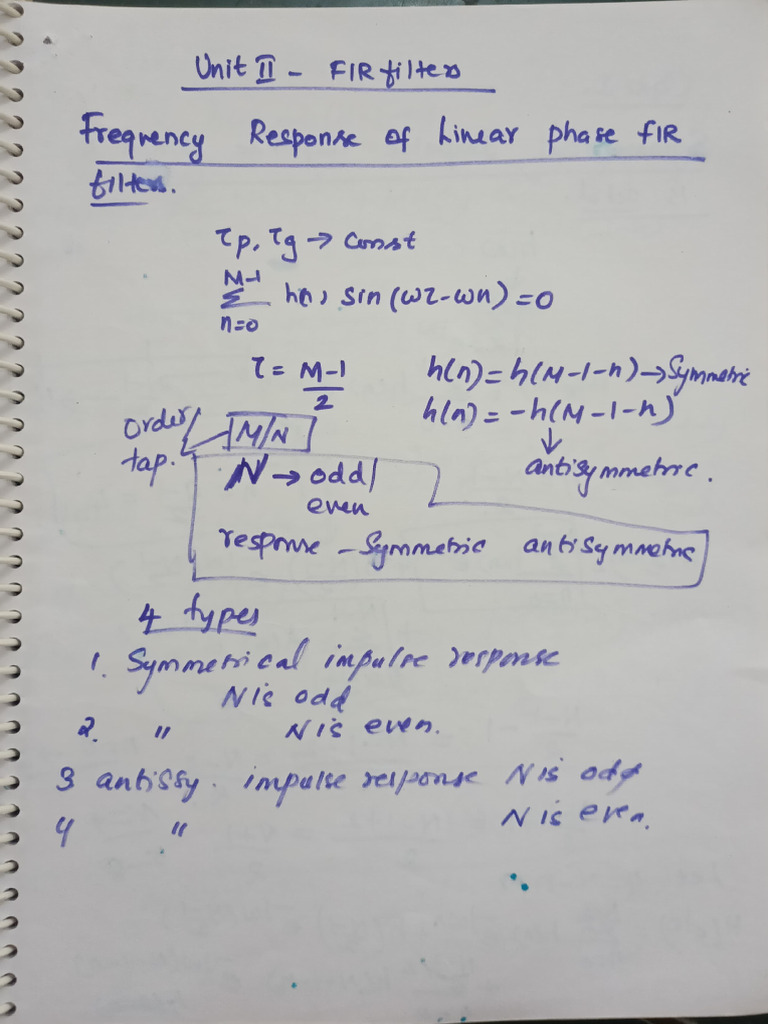 Unit II - FIR filters
Frequency Response of Linear phase FIR
filters.
τp, τg → const
M-1
Σ h(n) sin (ωτ-ωn) = 0
n=0
τ = M-1
2
h(n) = h(M-1-n) → Symmetric
h(n) = -h(M-1-n)
↓
antisymmetric.
order/
tap.
M/N
N → odd/
even
response - Symmetric antisymmetric
4 types
1. Symmetrical impulse response
N is odd
2. " N is even.
3 antissy. impulse response N is odd
4 " N is even.